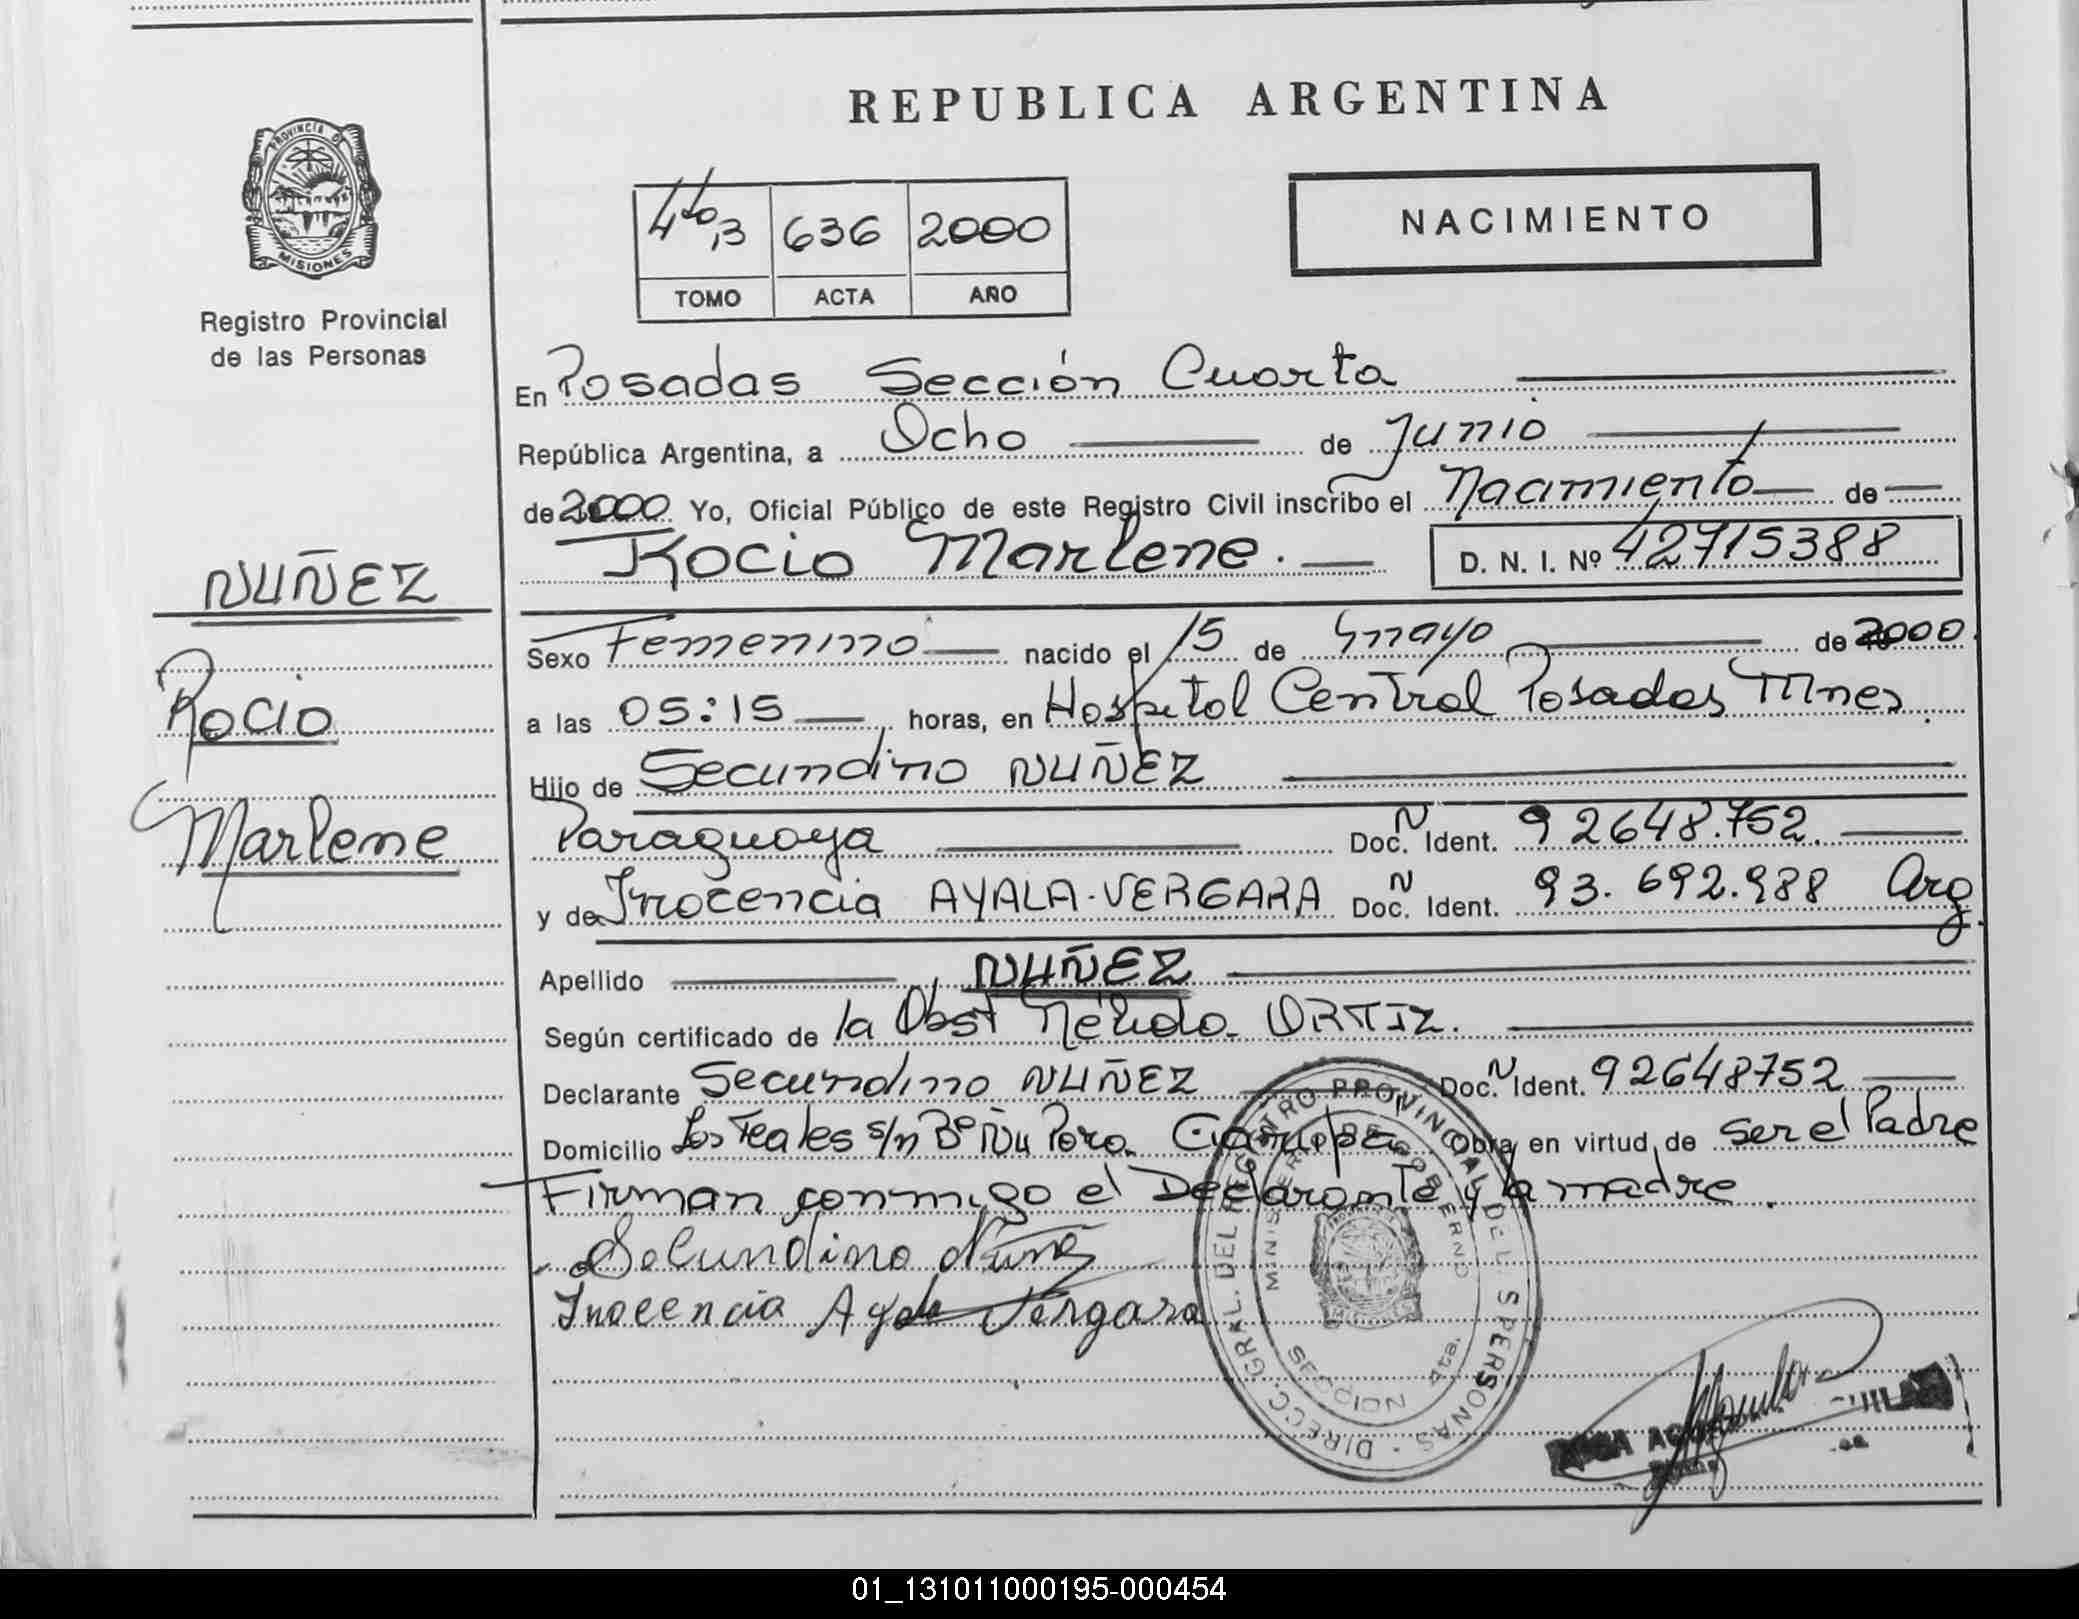 REPUBLICA ARGENTINA
PROVINCIA DE
MISIONES
Registro Provincial
de las Personas
636 2000
TOMO ACTA AÑO
NACIMIENTO
En Posadas Sección Cuarta
República Argentina, a Ocho de Junio
de 2000 Yo, Oficial Público de este Registro Civil inscribo el Nacimiento de
Rocio Marlene. D. N. I. Nº 42715388
NUÑEZ
Rocio
Marlene
Sexo Femenino nacido el 15 de mayo de 2000
a las 05:15 horas, en Hospital Central Posadas Mnes
Hijo de Secundino NUÑEZ
Paraguaya Doc. N Ident. 92648.752.
y de Inocencia AYALA-VERGARA Doc. N Ident. 93.692.988 Arg.
Apellido NUÑEZ
Según certificado de la Obst Nélida ORTIZ.
Declarante Secundino NUÑEZ Doc. N Ident. 92648752
Domicilio Los Teales s/n Bº Ñu Pora Garupá Obra en virtud de ser el Padre
Firman conmigo el Declarante y la madre.
Secundino Nuñez
Inocencia Ayala Vergara
DIRECC. GRAL. DEL REGISTRO PROVINCIAL DE LAS PERSONAS
MINISTERIO DE GOBIERNO
SECCION 4ta.
01_131011000195-000454